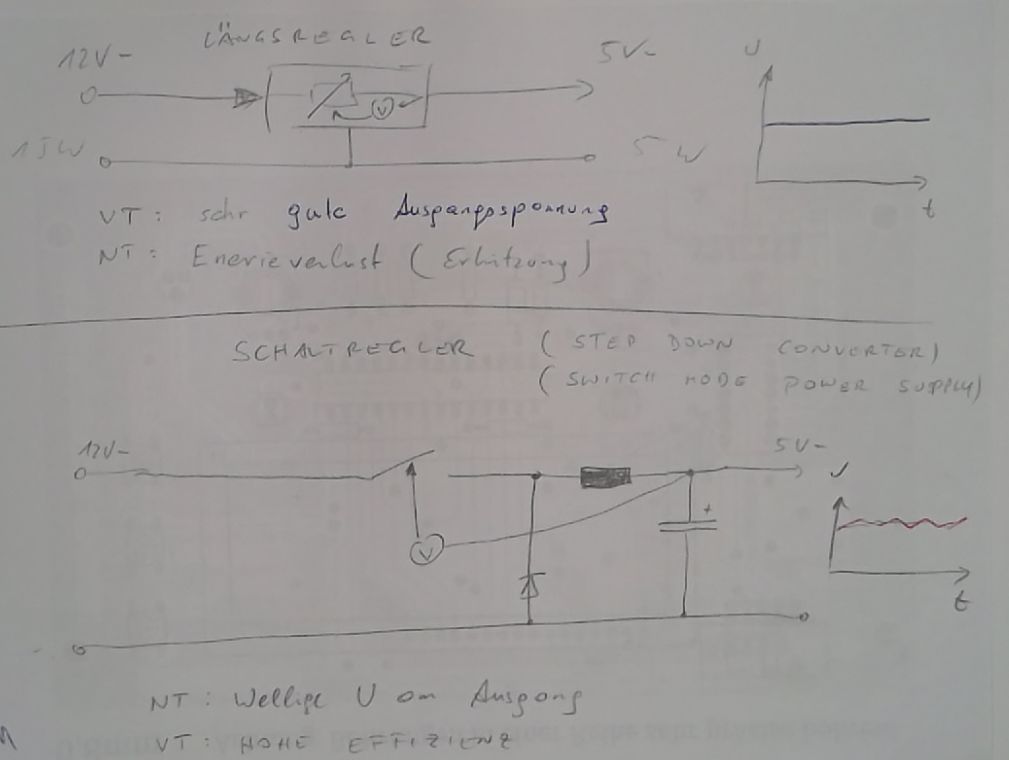 LÄNGSREGLER
12V-
5V-
U
V
15W
5W
t
VT: sehr gute Ausgangsspannung
NT: Enerieverlust (Erhitzung)
SCHALTREGLER (STEP DOWN CONVERTER)
(SWITCH MODE POWER SUPPLY)
12V-
5V-
U
+
V
t
NT: Wellige U am Ausgang
VT: HOHE EFFIZIENZ